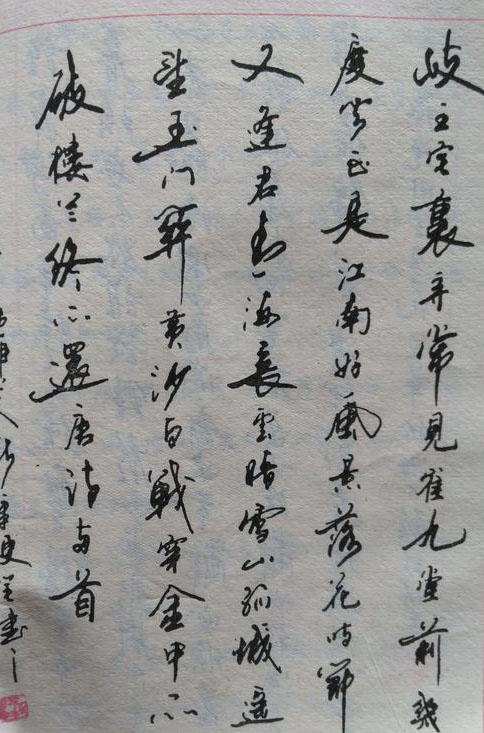 岐王宅裏尋常見崔九堂前幾
度聞正是江南好風景落花時節
又逢君青海長雲暗雪山孤城遙
望玉門關黃沙百戰穿金甲不
破樓蘭終不還唐詩兩首